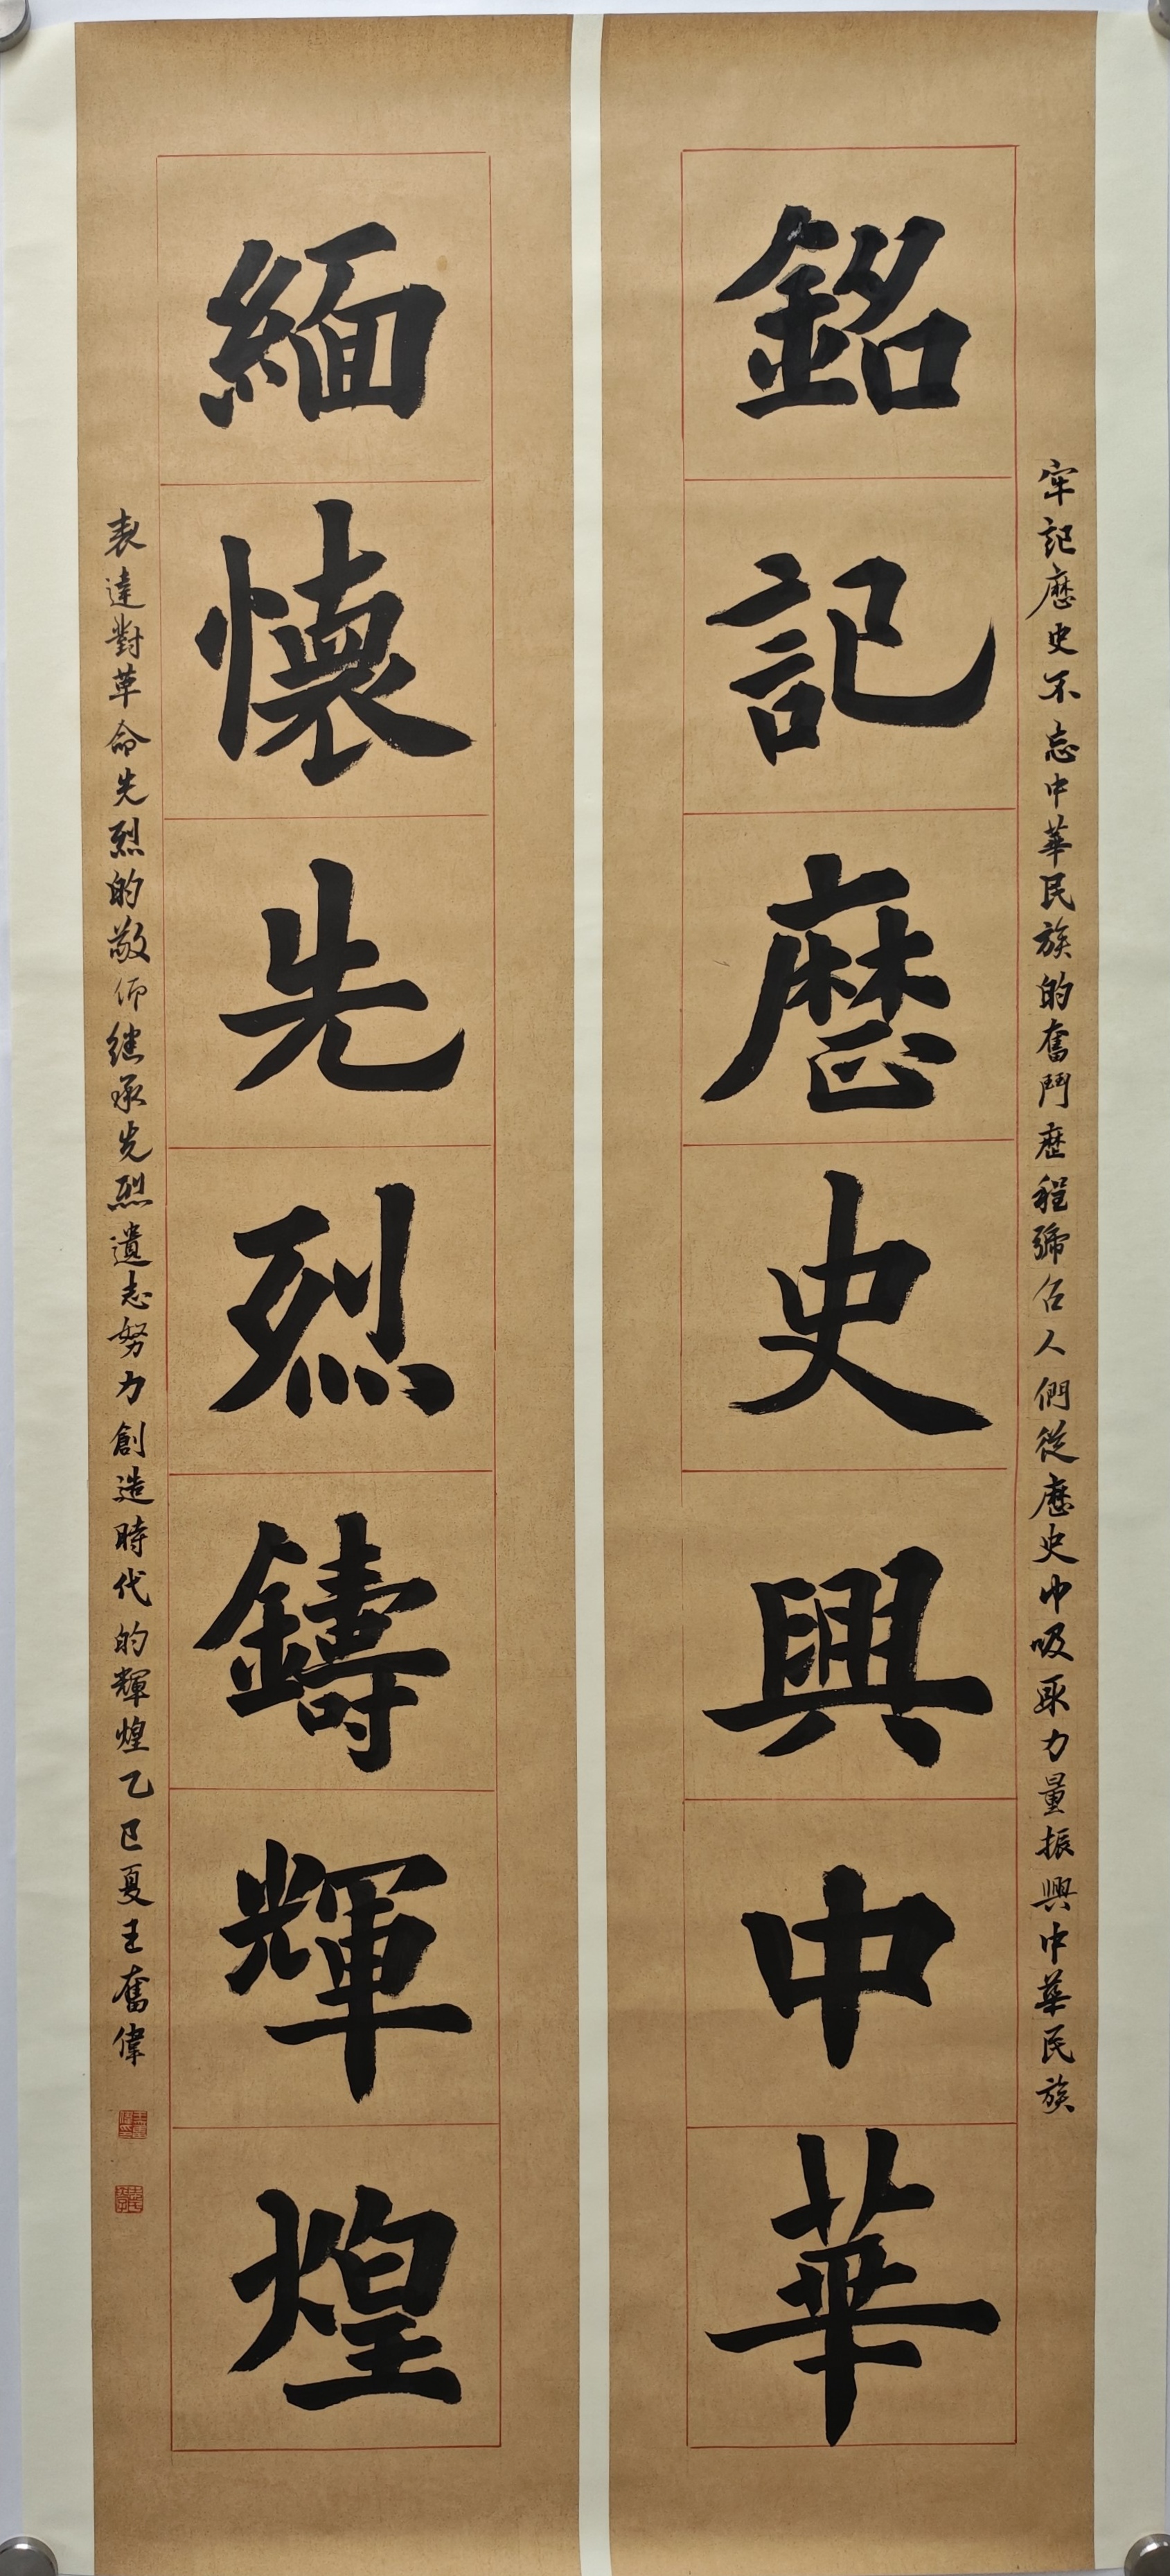 牢記歷史不忘中華民族的奮鬥歷程號召人們從歷史中吸取力量振興中華民族
銘記歷史興中華
緬懷先烈鑄輝煌
表達對革命先烈的敬仰继承先烈遺志努力創造時代的輝煌乙巳夏王奮偉